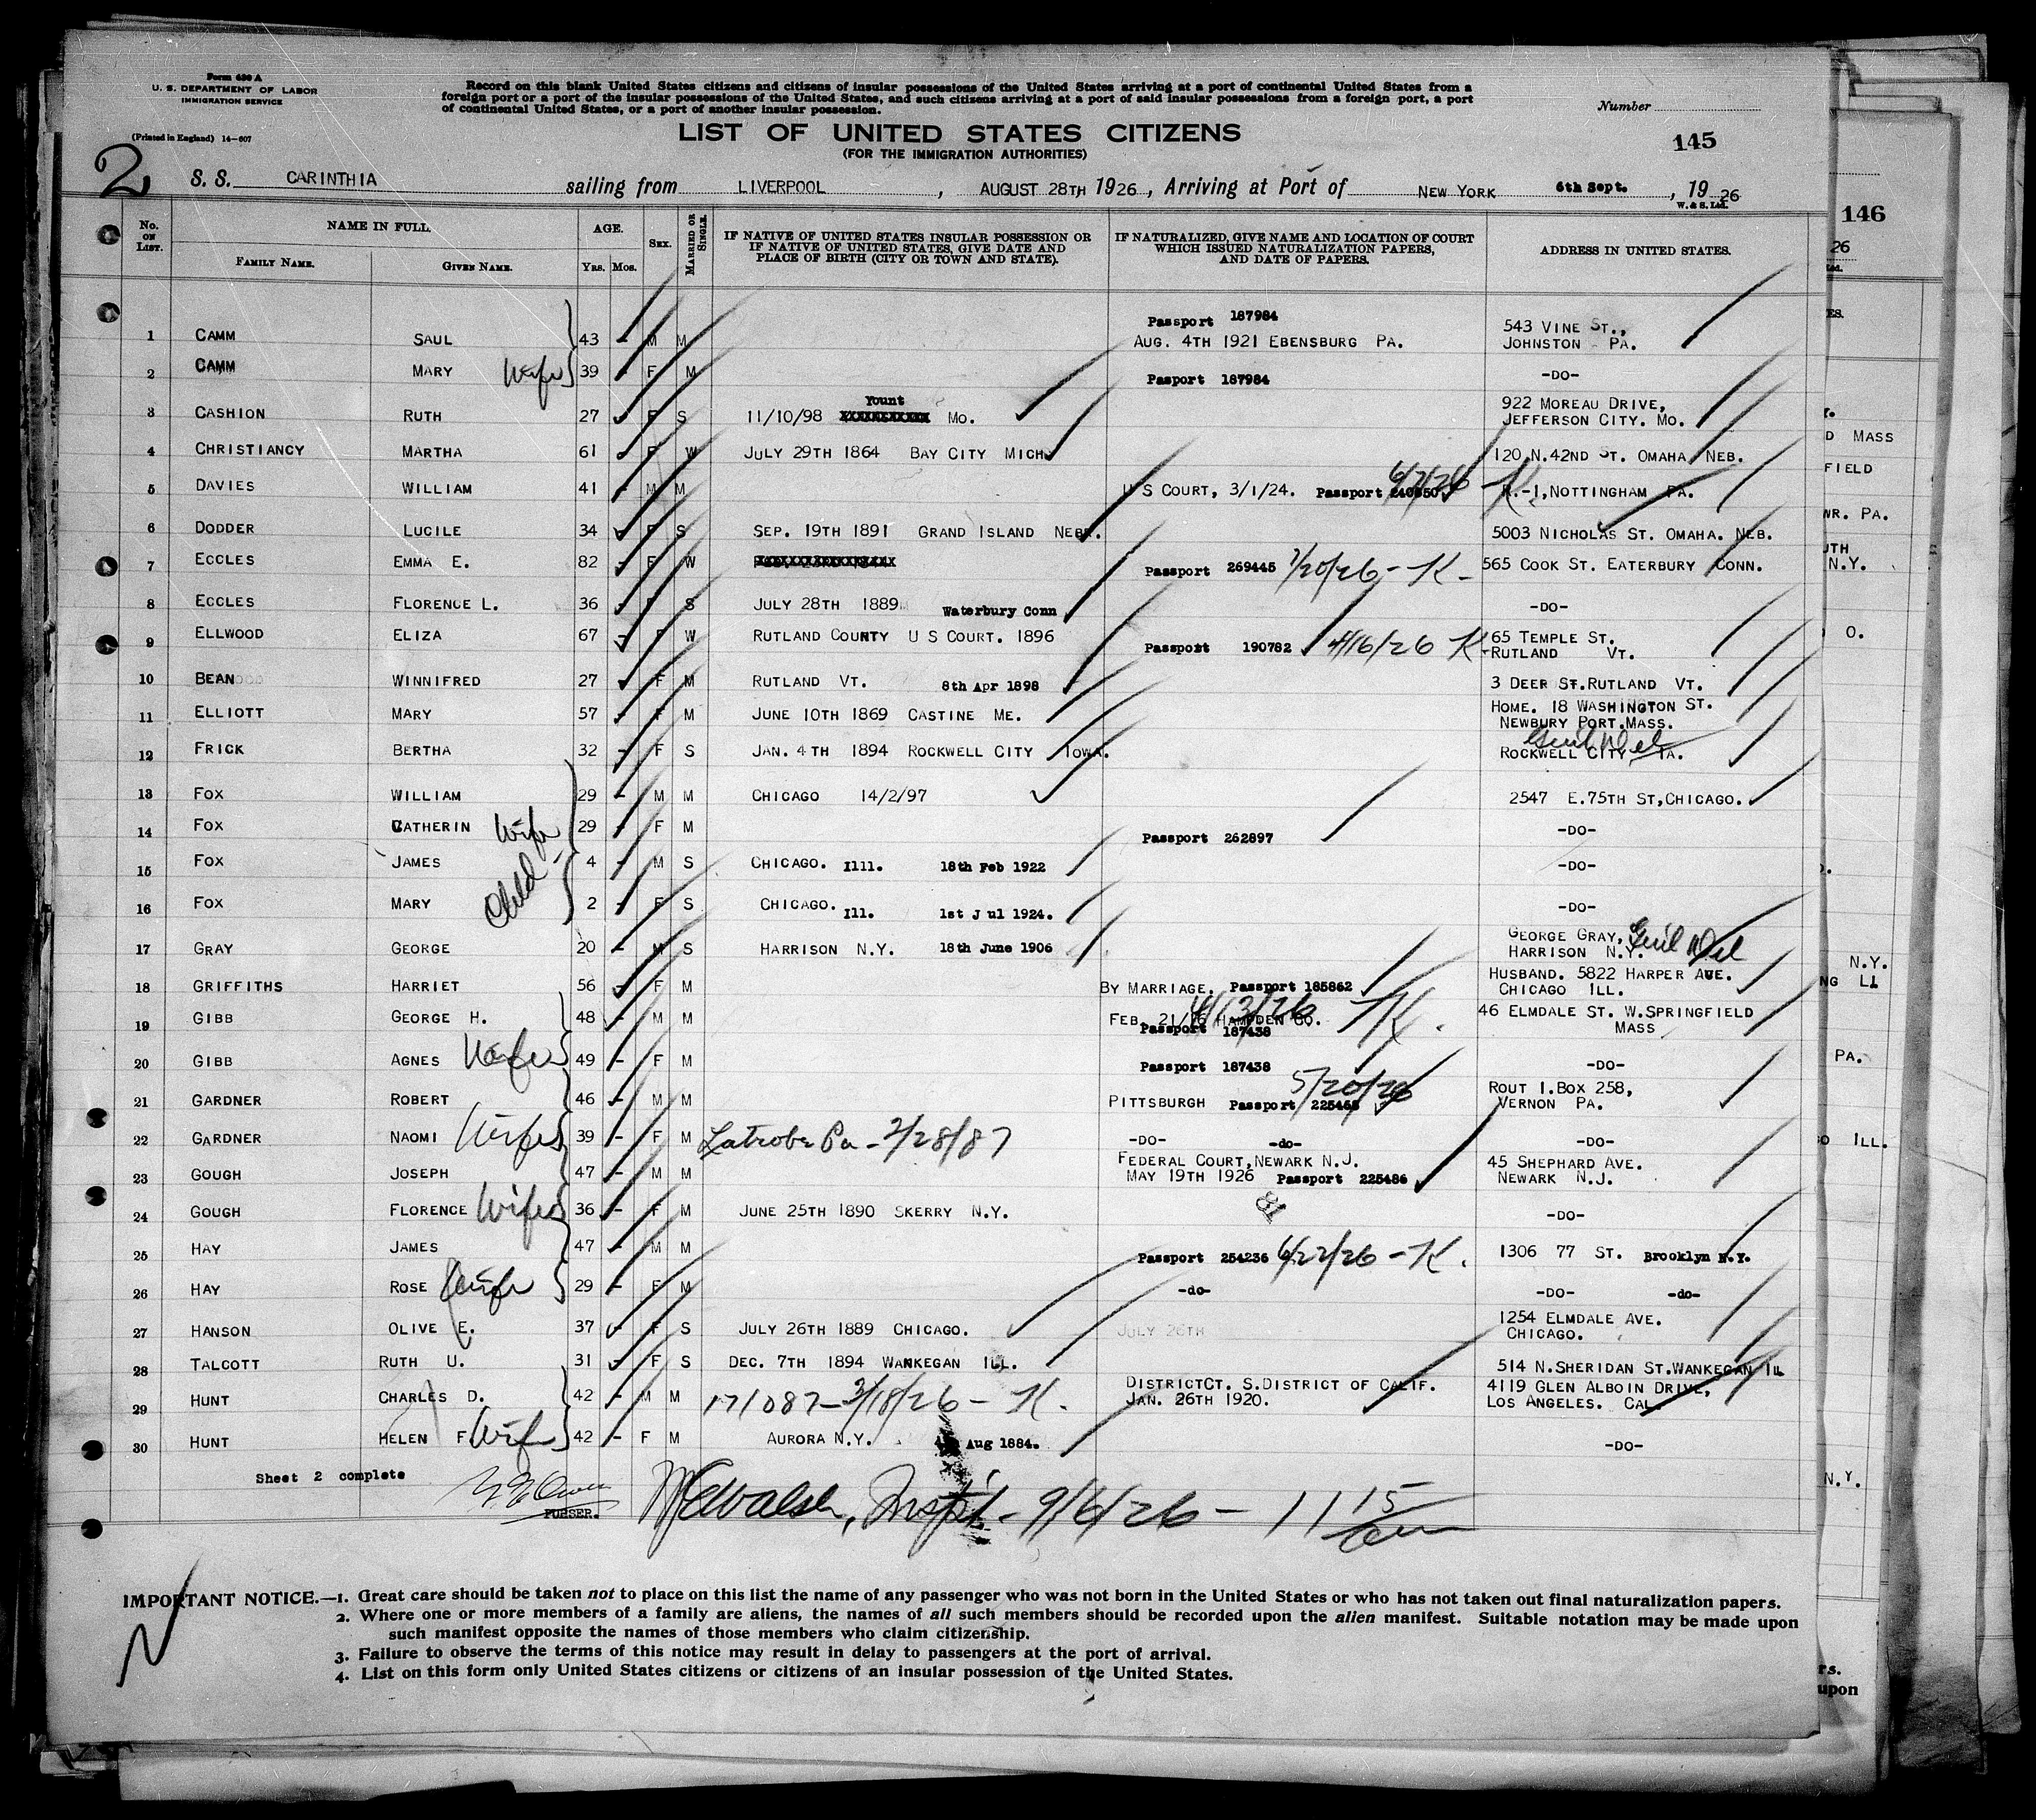 Form 630 A
U. S. DEPARTMENT OF LABOR
IMMIGRATION SERVICE
(Printed in England) 14-607
Record on this blank United States citizens and citizens of insular possessions of the United States arriving at a port of continental United States from a
foreign port or a port of the insular possessions of the United States, and such citizens arriving at a port of said insular possessions from a foreign port, a port
of continental United States, or a port of another insular possession.
Number
LIST OF UNITED STATES CITIZENS
(FOR THE IMMIGRATION AUTHORITIES)
145
2 S. S. CARINTHIA sailing from LIVERPOOL, AUGUST 28TH 1926, Arriving at Port of NEW YORK 6th Sept., 1926
W. & S. Ltd.
146
26
No. ON LIST. NAME IN FULL. FAMILY NAME. GIVEN NAME. AGE. YRS. MOS. SEX. MARRIED OR SINGLE. IF NATIVE OF UNITED STATES INSULAR POSSESSION OR IF NATIVE OF UNITED STATES, GIVE DATE AND PLACE OF BIRTH (CITY OR TOWN AND STATE). IF NATURALIZED, GIVE NAME AND LOCATION OF COURT WHICH ISSUED NATURALIZATION PAPERS, AND DATE OF PAPERS. ADDRESS IN UNITED STATES.
1 CAMM SAUL 43 - M M Passport 187984 AUG. 4TH 1921 EBENSBURG PA. 543 VINE ST., JOHNSTON - PA.
2 CAMM MARY Wife 39 - F M Passport 187984 -DO-
3 CASHION RUTH 27 F S 11/10/98 Yount MO. 922 MOREAU DRIVE, JEFFERSON CITY. MO.
4 CHRISTIANCY MARTHA 61 F W JULY 29TH 1864 BAY CITY MICH 120 N.42ND ST. OMAHA NEB.
5 DAVIES WILLIAM 41 - M M U S COURT, 3/1/24. Passport R.-1, NOTTINGHAM PA.
6 DODDER LUCILE 34 F S SEP. 19TH 1891 GRAND ISLAND NEBR. 5003 NICHOLAS ST. OMAHA. NEB.
7 ECCLES EMMA E. 82 F W Passport 269445 7/20/26 - K - 565 COOK ST. EATERBURY CONN.
8 ECCLES FLORENCE L. 36 - F S JULY 28TH 1889 Waterbury Conn -DO-
9 ELLWOOD ELIZA 67 F W RUTLAND COUNTY U S COURT. 1896 Passport 190782 4/16/26 K 65 TEMPLE ST. RUTLAND VT.
10 BEAN WINNIFRED 27 F M RUTLAND VT. 8th Apr 1898 3 DEER ST. RUTLAND VT.
11 ELLIOTT MARY 57 - F M JUNE 10TH 1869 CASTINE ME. HOME. 18 WASHINGTON ST. NEWBURY PORT. MASS.
12 FRICK BERTHA 32 - F S JAN. 4TH 1894 ROCKWELL CITY IOWA. ROCKWELL CITY IA.
13 FOX WILLIAM 29 - M M CHICAGO 14/2/97 2547 E.75TH ST, CHICAGO.
14 FOX CATHERIN Wife 29 - F M Passport 262897 -DO-
15 FOX JAMES 4 - M S CHICAGO. Ill. 18th Feb 1922 -DO-
Child
16 FOX MARY 2 - F S CHICAGO. Ill. 1st Jul 1924. -DO-
17 GRAY GEORGE 20 - M S HARRISON N.Y. 18th June 1906 GEORGE GRAY, HARRISON N.Y.
18 GRIFFITHS HARRIET 56 F M BY MARRIAGE. Passport 185862 HUSBAND. 5822 HARPER AVE. CHICAGO ILL.
19 GIBB GEORGE H. 48 - M M FEB. 21/ HAMPDEN CO. 4/13/26 K. Passport 187438 46 ELMDALE ST. W. SPRINGFIELD MASS
20 GIBB AGNES Wife 49 - F M Passport 187438 -DO-
21 GARDNER ROBERT 46 M M PITTSBURGH Passport 5/20/26 ROUT 1. BOX 258, VERNON PA.
22 GARDNER NAOMI Wife 39 - F M Latrobe Pa - 2/28/87 -DO- -do- -DO-
23 GOUGH JOSEPH 47 M M FEDERAL COURT, NEWARK N.J. MAY 19TH 1926 Passport 225486 45 SHEPHARD AVE. NEWARK N.J.
81
24 GOUGH FLORENCE Wife 36 - F M JUNE 25TH 1890 SKERRY N.Y. -DO-
25 HAY JAMES 47 - M M Passport 254236 6/22/26 - K. 1306 77 ST. Brooklyn N.Y.
26 HAY ROSE Wife 29 - F M -do- -DO- -do-
27 HANSON OLIVE E. 37 - F S JULY 26TH 1889 CHICAGO. JULY 26TH 1254 ELMDALE AVE. CHICAGO.
28 TALCOTT RUTH U. 31 F S DEC. 7TH 1894 WANKEGAN ILL. 514 N. SHERIDAN ST. WANKEGAN ILL
29 HUNT CHARLES D. 42 - M M 171087 - 3/18/26 - K. DISTRICT CT. S. DISTRICT OF CALIF. JAN. 26TH 1920. 4119 GLEN ALBOIN DRIVE, LOS ANGELES. CAL.
30 HUNT HELEN F. Wife 42 - F M AURORA N.Y. Aug 1884. -DO-
Sheet 2 complete
PURSER.
Inspt. - 9/6/26 - 11 15
IMPORTANT NOTICE.—1. Great care should be taken not to place on this list the name of any passenger who was not born in the United States or who has not taken out final naturalization papers.
2. Where one or more members of a family are aliens, the names of all such members should be recorded upon the alien manifest. Suitable notation may be made upon
such manifest opposite the names of those members who claim citizenship.
3. Failure to observe the terms of this notice may result in delay to passengers at the port of arrival.
4. List on this form only United States citizens or citizens of an insular possession of the United States.